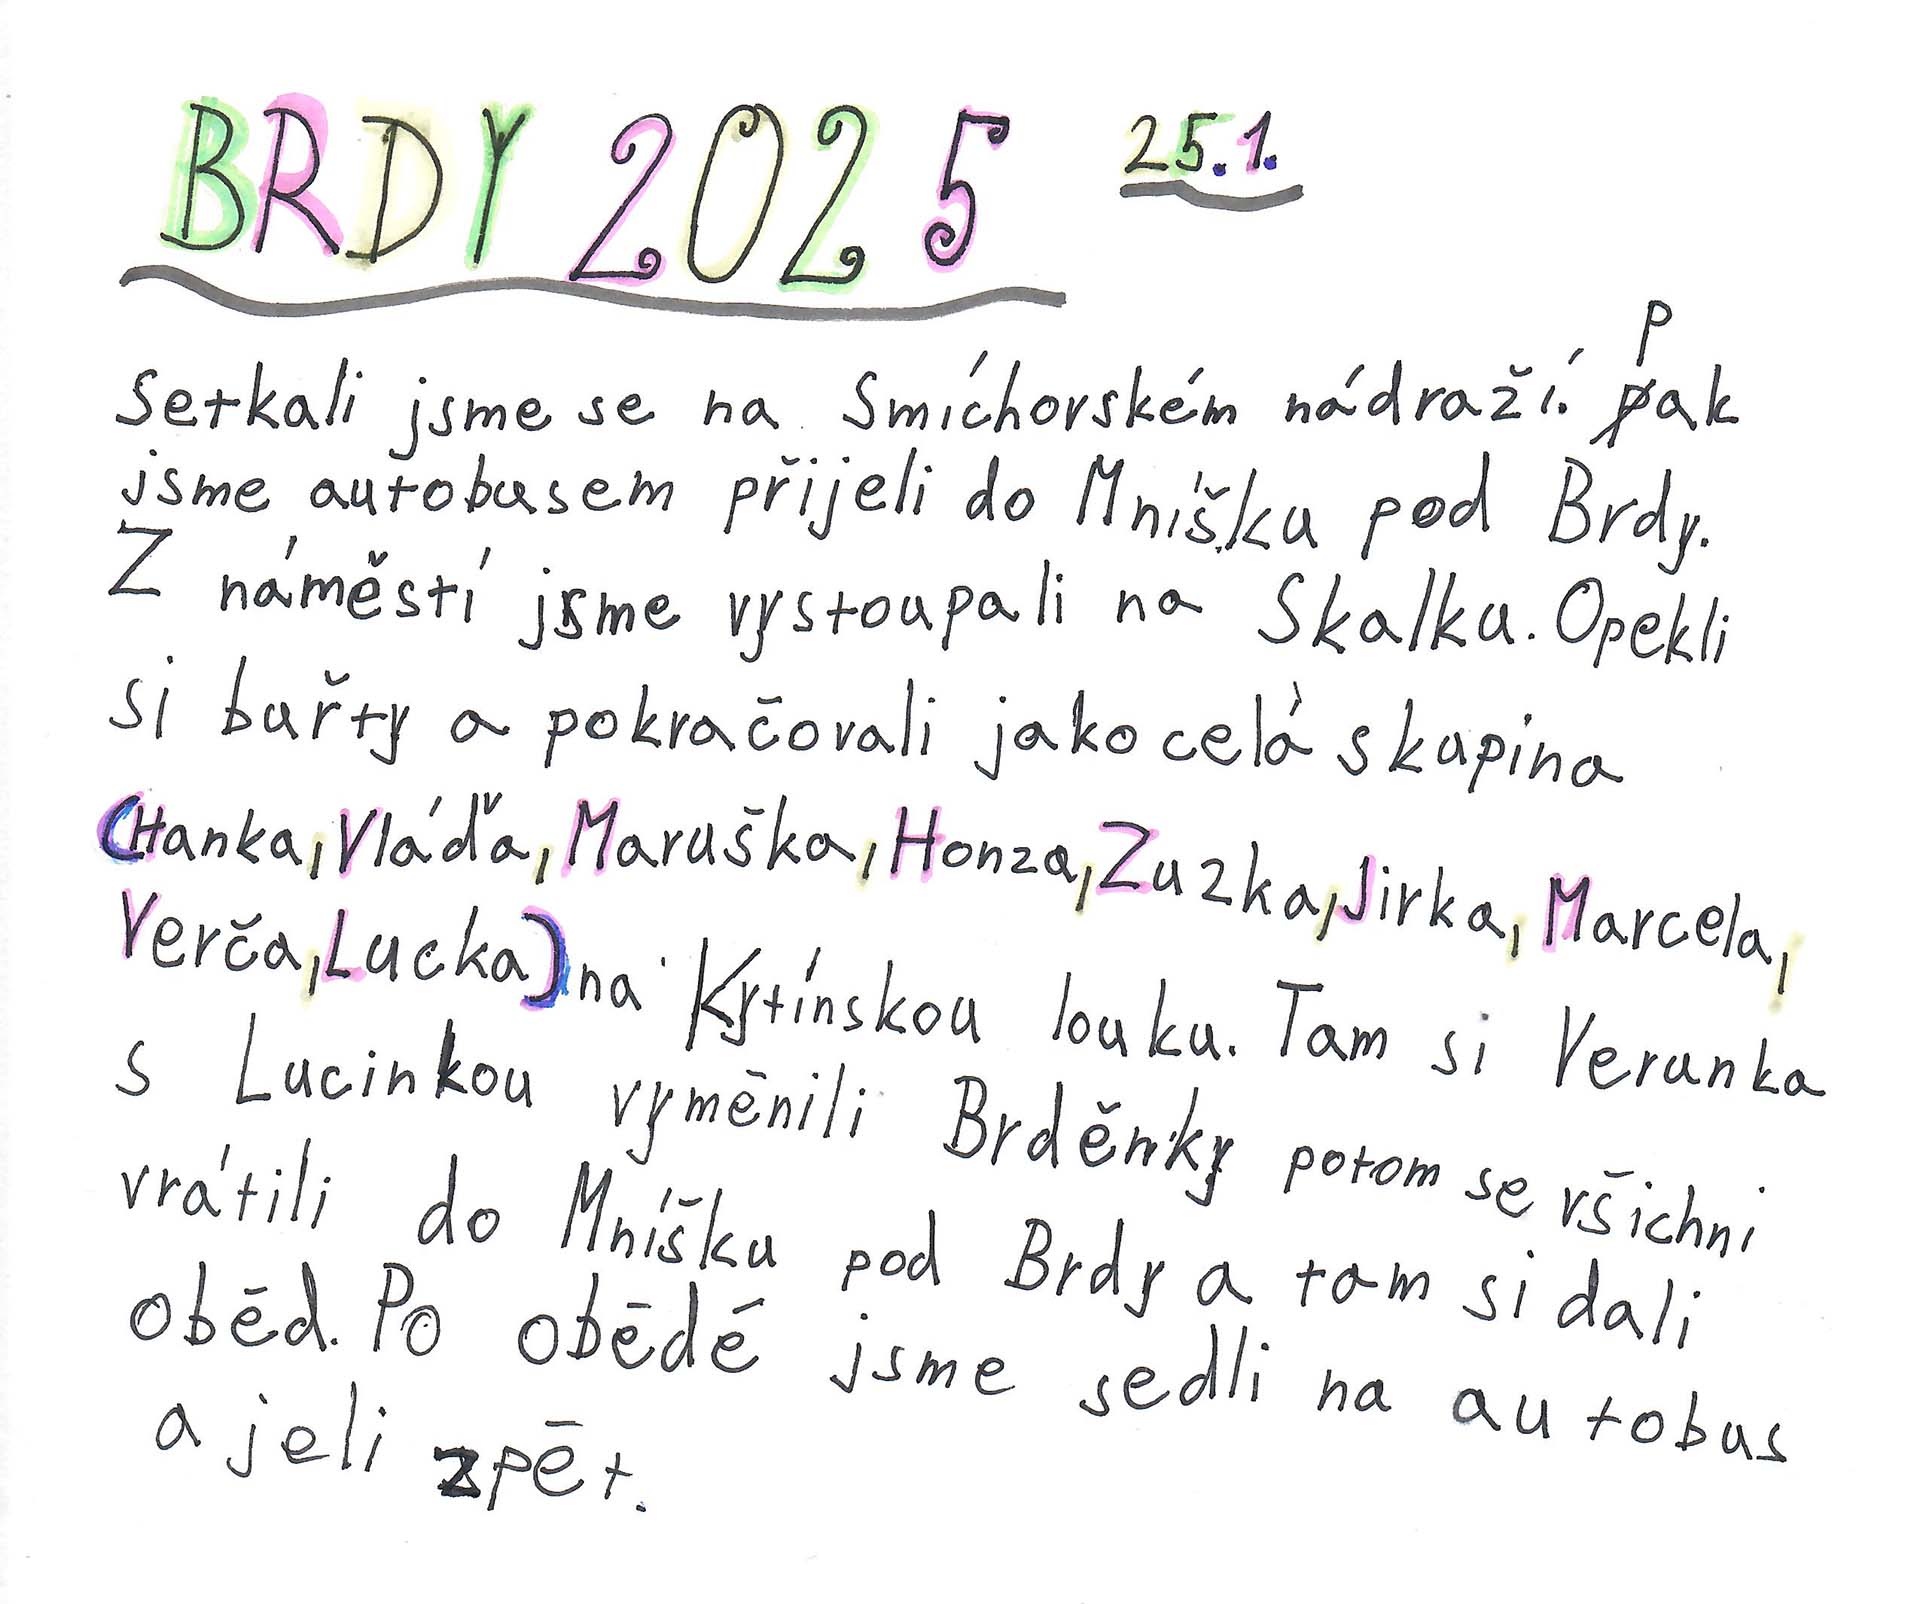 BRDY 2025 25.1.
Setkali jsme se na Smíchovském nádraží. Pak
jsme autobusem přijeli do Mníšku pod Brdy.
Z náměstí jsme vystoupali na Skalku. Opekli
si buřty a pokračovali jako celá skupina
(Hanka, Vláďa, Maruška, Honza, Zuzka, Jirka, Marcela,
Verča, Lucka) na Kytínskou louku. Tam si Verunka
s Lucinkou vyměnili Brděnky potom se všichni
vrátili do Mníšku pod Brdy a tam si dali
oběd. Po obědě jsme sedli na autobus
a jeli zpět.